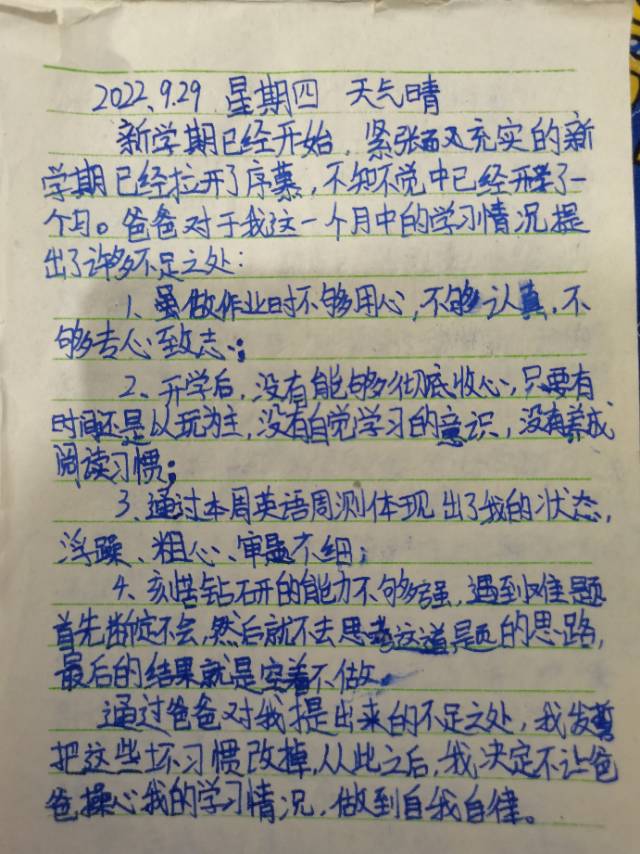 2022.9.29 星期四 天气晴
新学期已经开始，紧张而又充实的新
学期已经拉开了序幕，不知不觉中已经开学了一
个月。爸爸对于我这一个月中的学习情况提
出了许多不足之处：
1、做作业时不够用心，不够认真，不
够专心致志；
2、开学后，没有能够彻底收心，只要有
时间还是以玩为主，没有自觉学习的意识，没有养成
阅读习惯；
3、通过本周英语周测体现出了我的状态，
浮躁、粗心、审题不细；
4、刻苦钻研的能力不够强，遇到难题
首先断定不会，然后就不去思考这道题的思路，
最后的结果就是空着不做。
通过爸爸对我提出来的不足之处，我发誓
把这些坏习惯改掉，从此之后，我决定不让爸
爸操心我的学习情况，做到自我自律。